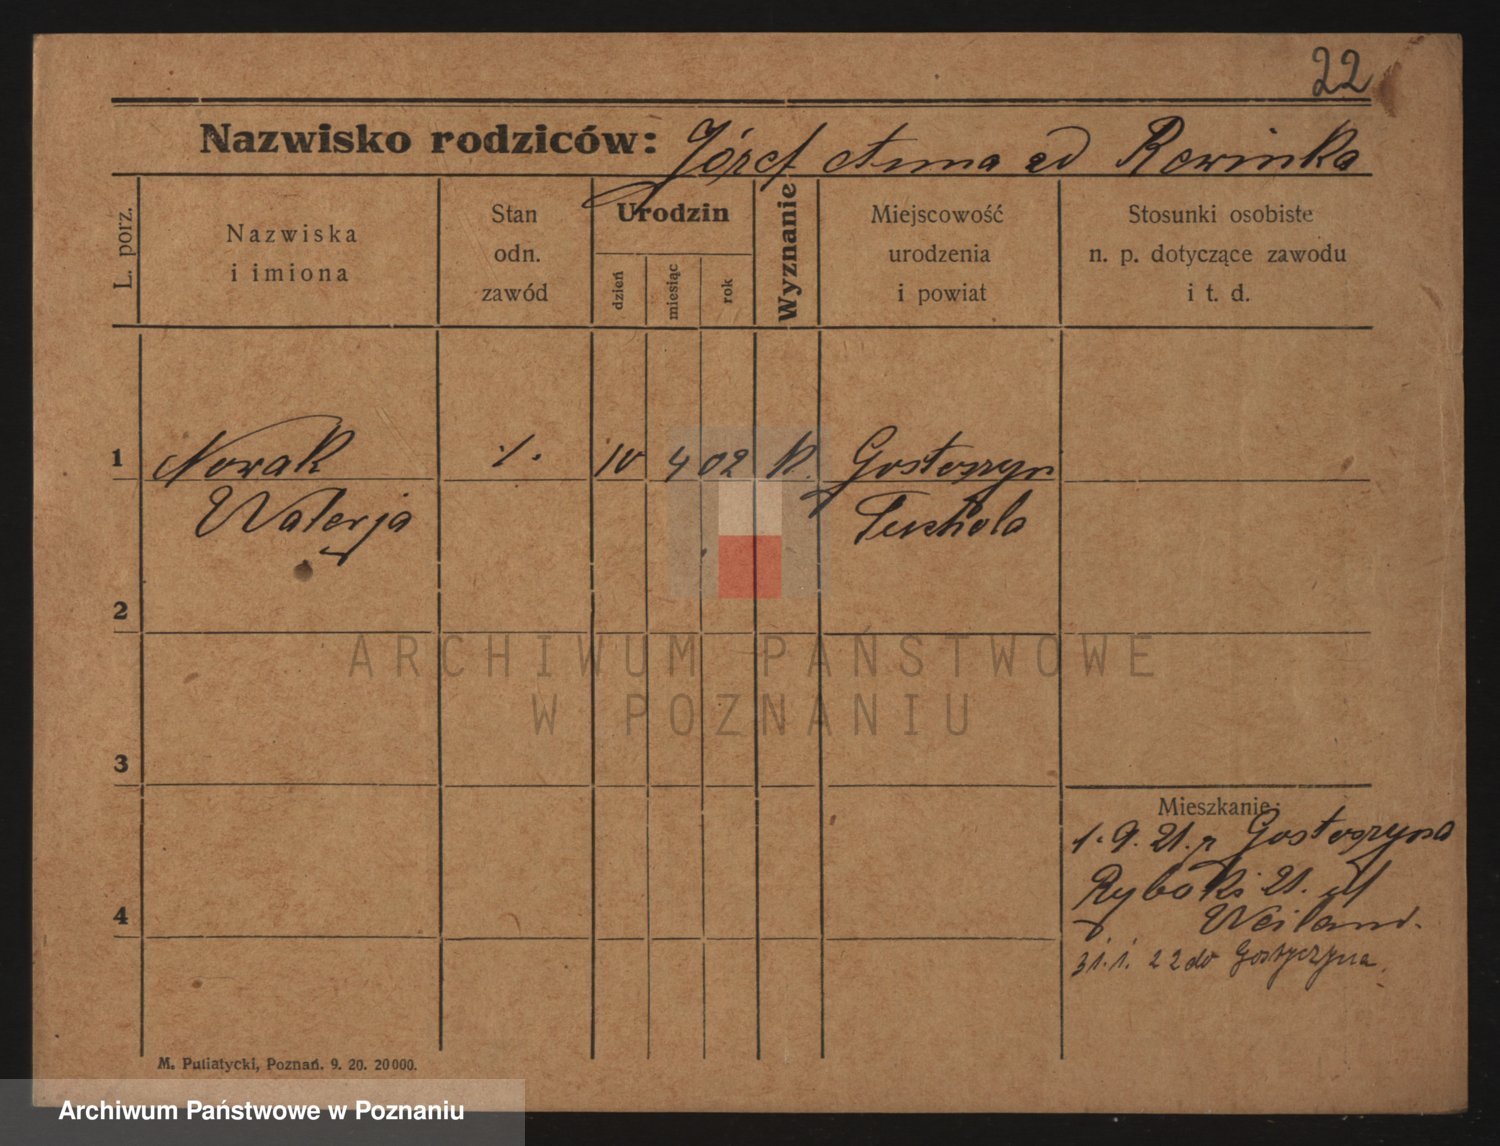 22
Nazwisko rodziców: Józef Anna
L. porz.
Nazwiska
i imiona
Stan
odn.
zawód
Urodzin
dzień
miesiąc
rok
Wyznanie
Miejscowość
urodzenia
i powiat
Stosunki osobiste
n. p. dotyczące zawodu
i t. d.
1 Nowak 10 4 02 k.
Walerja Tuchola
2
ARCHIWUM PAŃSTWOWE
W POZNANIU
3
Mieszkanie:
1. 9. 21.
Rybaki 21.
Weiland.
4
31. 1. 22 do Gostyczyna.
M. Putiatycki, Poznań. 9. 20. 20000.
Archiwum Państwowe w Poznaniu